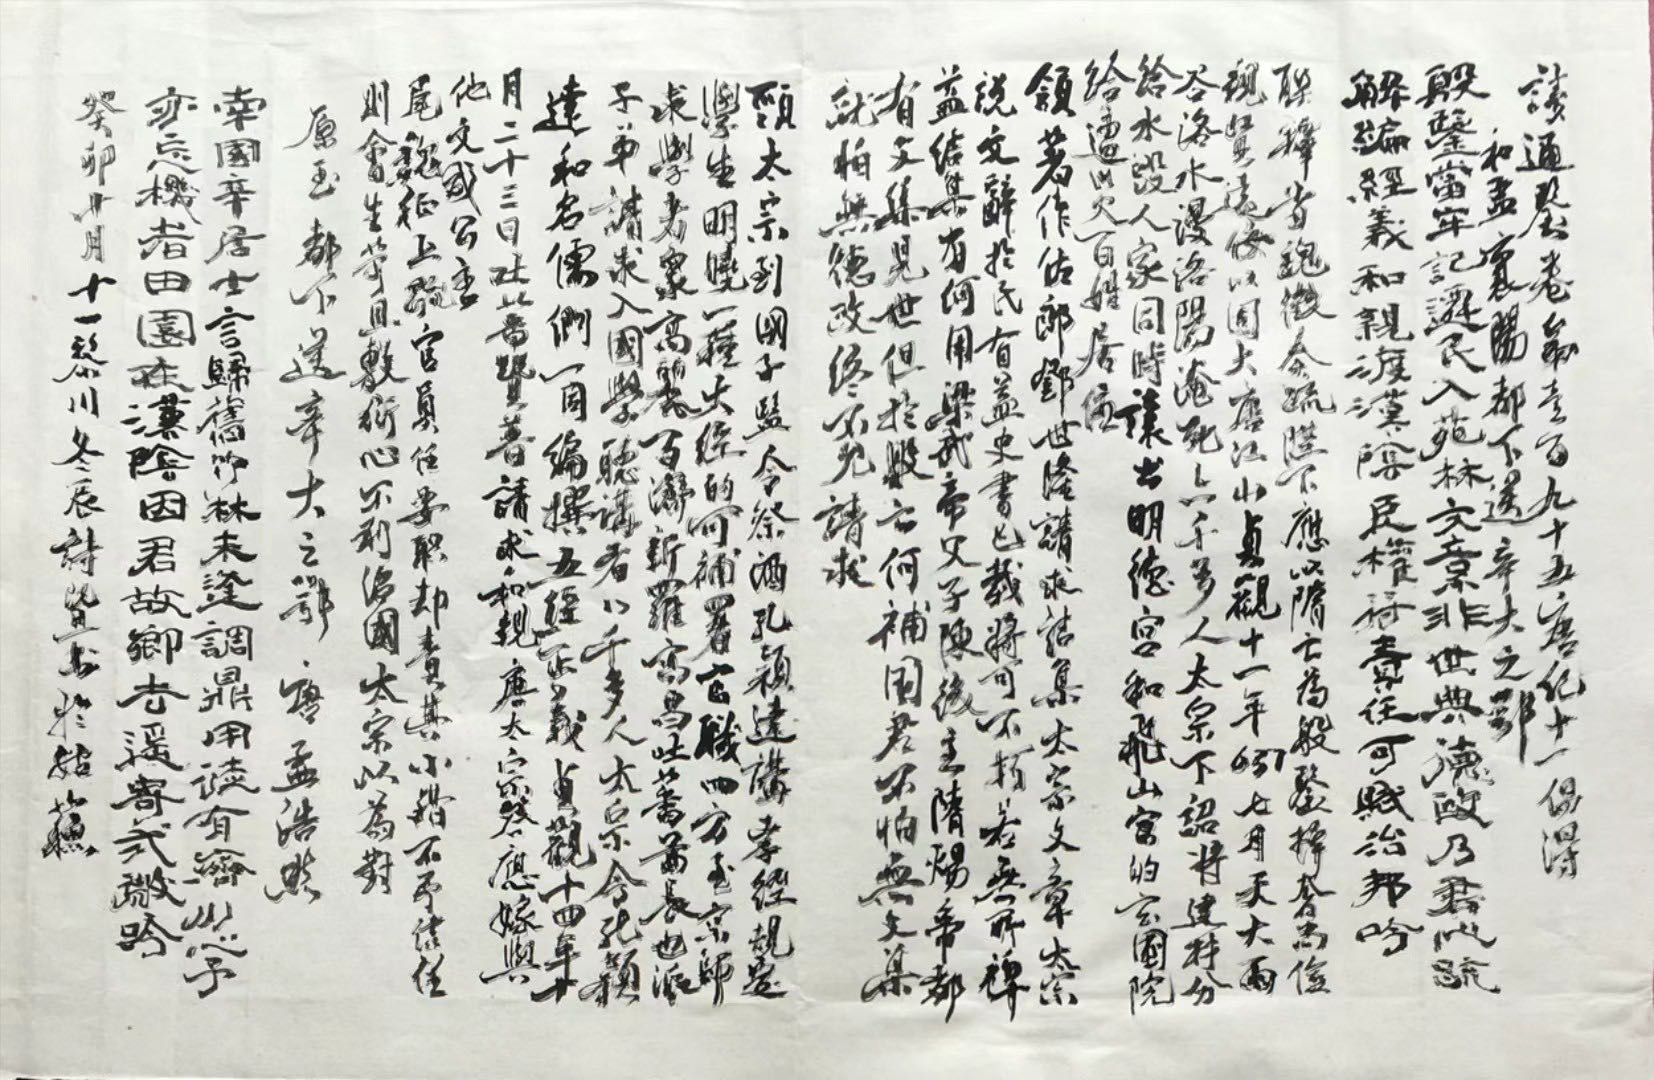 讀通鑑卷第壹百九十五唐紀十一偶得
和孟襄陽都下送辛大之鄂
殷鑒當牢記遷民入苑林文章非世典德政乃君心疏
解編經義和親渡漢陰臣權符責任可賦治邦吟
聯擇者魏徵奏疏陛下應以隋亡為殷鑒擇奢尚儉
親賢遠佞以固大唐江山貞觀十一年637七月天大雨
谷洛水漫洛陽淹死六千多人太宗下詔將建材分
給水毀人家同時讓出明德宮和飛山宮的玄圃院
給遭災百姓居住
領著作佐郎鄧世隆請求詰集太宗文章太宗
說文辭於民有益史書已載將可不朽若無所裨
益結集有何用梁武帝父子陳後主隋煬帝都
有文集見世但於毀亡何補國君不怕無文集
就怕無德政終不允請求
頭太宗到國子監令祭酒孔穎達講孝經規定
學生明曉一種大經的可補署官職四方至京師
求學者眾高麗百濟新羅高昌吐蕃酋長也派
子弟請求入國學聽講者八千多人太宗令孔穎
達和名儒們一同編撰五經正義貞觀十四年十
月二十三日吐蕃贊普請求和親唐太宗答應嫁與
他文成公主
尾魏征上疏官員任要职却責其小錯不予信任
則會生苟且敷衍心不利治國太宗以為對
原玉都下送辛大之鄂唐孟浩然
南國辛居士言歸舊竹林未逢調鼎用徒有濟川心予
亦忘機者田園在漢陰因君故鄉去遥寄式微吟
癸卯十月十一黎川冬辰詩并书於姑蘇